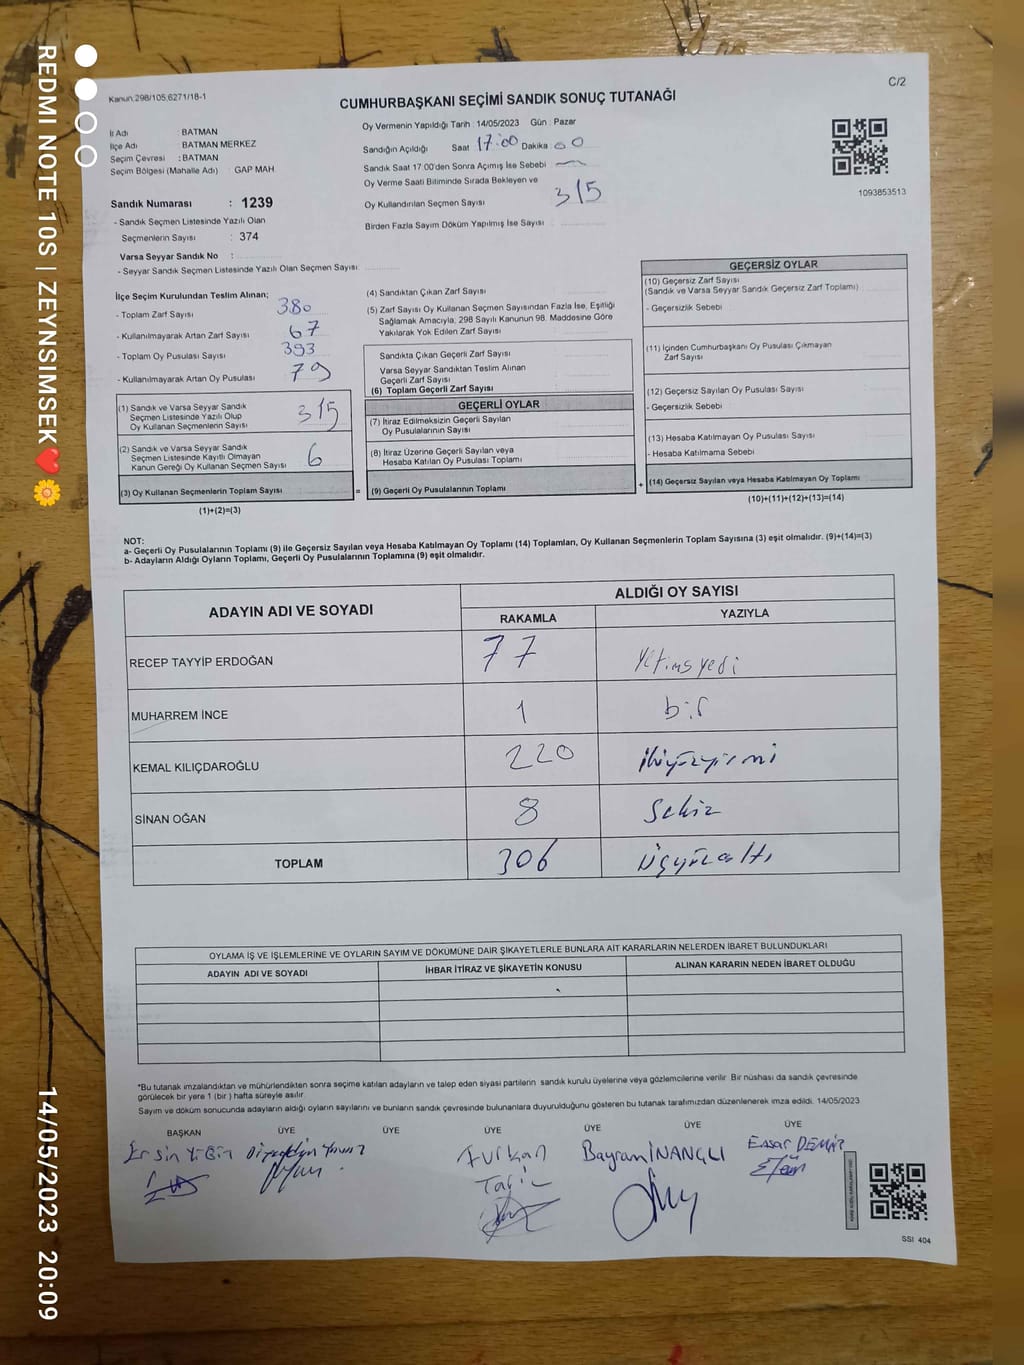 C/2
Kanun.298/105,6271/18-1
CUMHURBAŞKANI SEÇİMİ SANDIK SONUÇ TUTANAĞI
İl Adı : BATMAN
İlçe Adı : BATMAN MERKEZ
Seçim Çevresi : BATMAN
Seçim Bölgesi (Mahalle Adı) : GAP MAH
Sandık Numarası : 1239
- Sandık Seçmen Listesinde Yazılı Olan
Seçmenlerin Sayısı : 374
Varsa Seyyar Sandık No :
- Seyyar Sandık Seçmen Listesinde Yazılı Olan Seçmen Sayısı:
Oy Vermenin Yapıldığı Tarih : 14/05/2023 Gün : Pazar
Sandığın Açıldığı Saat 17:00 Dakika 00
Sandık Saat 17:00'den Sonra Açımış İse Sebebi
Oy Verme Saati Bitiminde Sırada Bekleyen ve
Oy Kullandırılan Seçmen Sayısı 315
Birden Fazla Sayım Döküm Yapılmış İse Sayısı :
1093853513
İlçe Seçim Kurulundan Teslim Alınan;
- Toplam Zarf Sayısı 380
- Kullanılmayarak Artan Zarf Sayısı 67
- Toplam Oy Pusulası Sayısı 393
- Kullanılmayarak Artan Oy Pusulası 79
(1) Sandık ve Varsa Seyyar Sandık
Seçmen Listesinde Yazılı Olup
Oy Kullanan Seçmenlerin Sayısı 315
(2) Sandık ve Varsa Seyyar Sandık
Seçmen Listesinde Kayıtlı Olmayan
Kanun Gereği Oy Kullanan Seçmen Sayısı 6
(3) Oy Kullanan Seçmenlerin Toplam Sayısı
(1)+(2)=(3)
=
(4) Sandıktan Çıkan Zarf Sayısı
(5) Zarf Sayısı Oy Kullanan Seçmen Sayısından Fazla İse, Eşitliği
Sağlamak Amacıyla, 298 Sayılı Kanunun 98. Maddesine Göre
Yakılarak Yok Edilen Zarf Sayısı
Sandıkta Çıkan Geçerli Zarf Sayısı
Varsa Seyyar Sandıktan Teslim Alınan
Geçerli Zarf Sayısı
(6) Toplam Geçerli Zarf Sayısı
GEÇERLİ OYLAR
(7) İtiraz Edilmeksizin Geçerli Sayılan
Oy Pusulalarının Sayısı
(8) İtiraz Üzerine Geçerli Sayılan veya
Hesaba Katılan Oy Pusulası Toplamı
(9) Geçerli Oy Pusulalarının Toplamı
+
GEÇERSİZ OYLAR
(10) Geçersiz Zarf Sayısı
(Sandık ve Varsa Seyyar Sandık Geçersiz Zarf Toplamı)
- Geçersizlik Sebebi
(11) İçinden Cumhurbaşkanı Oy Pusulası Çıkmayan
Zarf Sayısı
(12) Geçersiz Sayılan Oy Pusulası Sayısı
- Geçersizlik Sebebi
(13) Hesaba Katılmayan Oy Pusulası Sayısı
- Hesaba Katılmama Sebebi
(14) Geçersiz Sayılan veya Hesaba Katılmayan Oy Toplamı
(10)+(11)+(12)+(13)=(14)
NOT:
a- Geçerli Oy Pusulalarının Toplamı (9) ile Geçersiz Sayılan veya Hesaba Katılmayan Oy Toplamı (14) Toplamları, Oy Kullanan Seçmenlerin Toplam Sayısına (3) eşit olmalıdır. (9)+(14)=(3)
b- Adayların Aldığı Oyların Toplamı, Geçerli Oy Pusulalarının Toplamına (9) eşit olmalıdır.
ADAYIN ADI VE SOYADI
ALDIĞI OY SAYISI
RAKAMLA YAZIYLA
RECEP TAYYİP ERDOĞAN 77 Yetmişyedi
MUHARREM İNCE 1 bir
KEMAL KILIÇDAROĞLU 220 ikiyüzyirmi
SİNAN OĞAN 8 Sekiz
TOPLAM 306 üçyüzaltı
OYLAMA İŞ VE İŞLEMLERİNE VE OYLARIN SAYIM VE DÖKÜMÜNE DAİR ŞİKAYETLERLE BUNLARA AİT KARARLARIN NELERDEN İBARET BULUNDUKLARI
ADAYIN ADI VE SOYADI İHBAR İTİRAZ VE ŞİKAYETİN KONUSU ALINAN KARARIN NEDEN İBARET OLDUĞU
*Bu tutanak imzalandıktan ve mühürlendikten sonra seçime katılan adayların ve talep eden siyasi partilerin sandık kurulu üyelerine veya gözlemcilerine verilir. Bir nüshası da sandık çevresinde
görülecek bir yere 1 (bir ) hafta süreyle asılır.
Sayım ve döküm sonucunda adayların aldığı oyların sayılarını ve bunların sandık çevresinde bulunanlara duyurulduğunu gösteren bu tutanak tarafımızdan düzenlenerek imza edildi. 14/05/2023
BAŞKAN ÜYE ÜYE ÜYE ÜYE ÜYE
Ersin Furkan Bayram İNANÇLI Essar DEMİR
SSI 404
REDMI NOTE 10S | ZEYNSIMSEK❤️🌼
14/05/2023 20:09